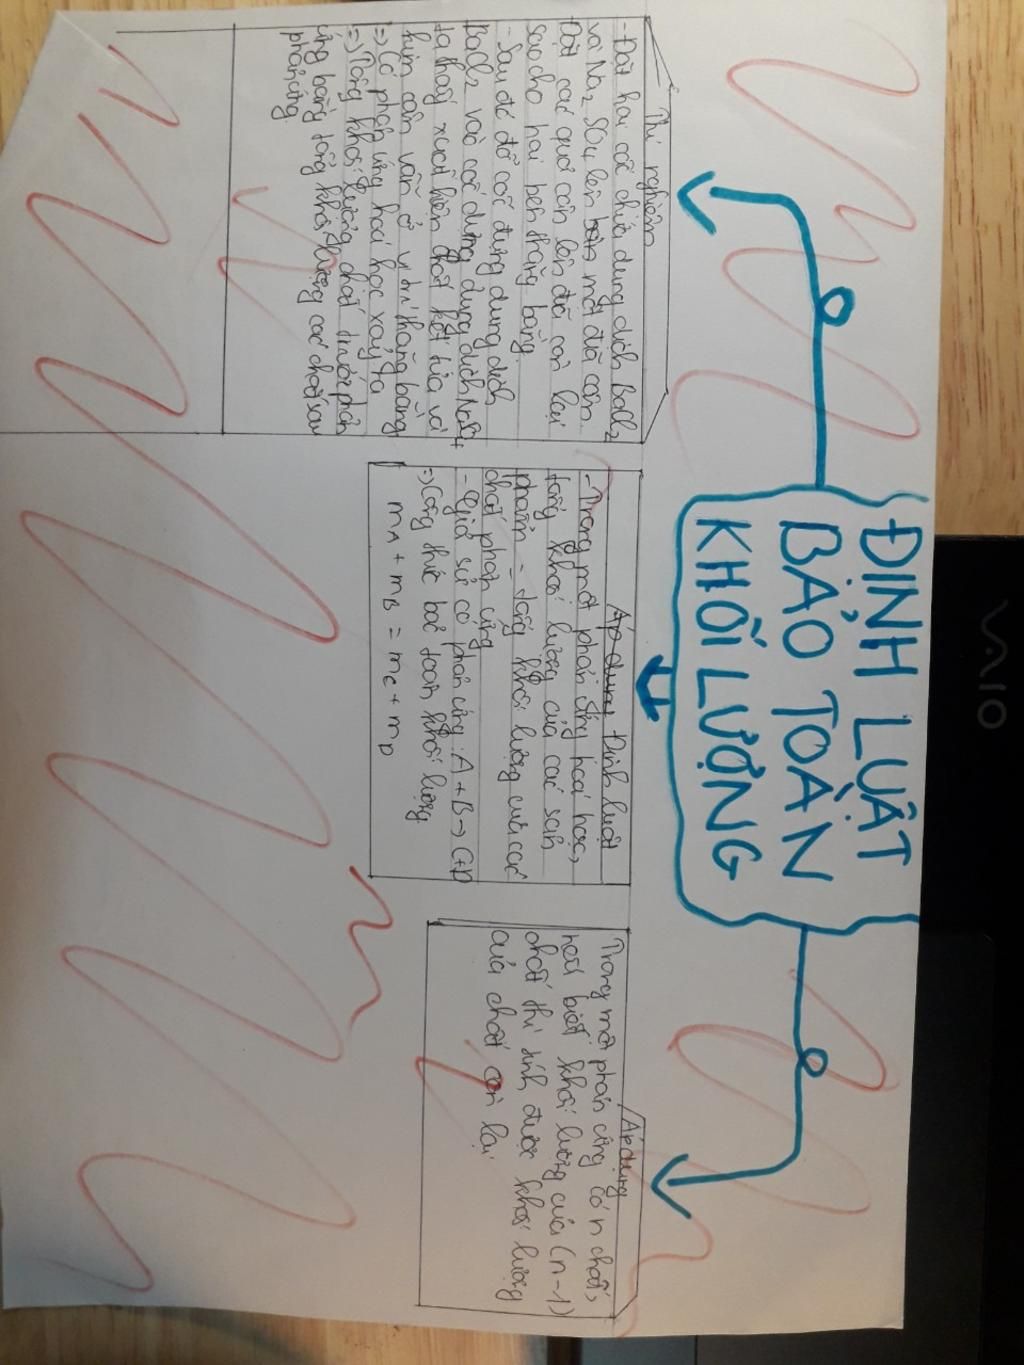 ĐỊNH LUẬT
BẢO TOÀN
KHỐI LƯỢNG
Thí nghiệm
- Đặt hai cốc chứa dung dịch BaCl2
và Na2SO4 lên bàn một đĩa cân.
Đặt các quả cân lên đĩa còn lại
sao cho hai bên thăng bằng.
- Sau đó đổ cốc đựng dung dịch
BaCl2 vào cốc đựng dung dịch Na2SO4
ta thấy xuất hiện chất kết tủa và
kim cân vẫn ở vị trí thăng bằng
=> Có phản ứng hoá học xảy ra
=> Tổng khối lượng chất trước phản
ứng bằng tổng khối lượng các chất sau
phản ứng.
Áp dụng Định luật
- Trong một phản ứng hoá học,
tổng khối lượng của các sản
phẩm = tổng khối lượng của các
chất phản ứng
- Giả sử có phản ứng: A + B → C + D
=> Công thức bảo toàn khối lượng.
mA + mB = mC + mD
Áp dụng
Trong một phản ứng có n chất,
nếu biết khối lượng của (n-1)
chất thì tính được khối lượng
của chất còn lại
VAIO